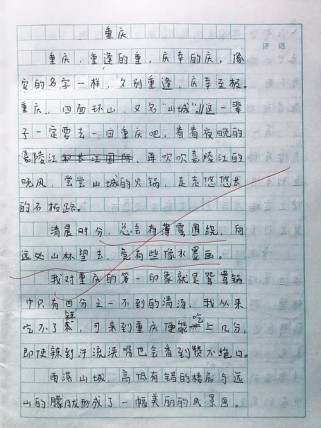 重庆
重庆，重逢的重，庆幸的庆，像
它的名字一样，久别重逢，庆幸至极。
重庆，四面环山，又名"山城"，这一辈
子一定要去一回重庆吧，看看夜晚的
嘉陵江，再吹吹嘉陵江的
晚风，尝尝山城的火锅，走走悠悠长
的石板路。
清晨时分，总会有薄雾围绕，向
远处山林望去，竟有些像水墨画。
我对重庆的第一印象就是鸳鸯锅
中只有四分之一不到的清汤，我从来
吃不了辣，可来到重庆便能吃上几分，
即使辣到汗流浃背也会看到赞不绝口。
雨落山城，高低有错的楼房与远
山的朦胧形成了一幅美丽的风景画。
评语